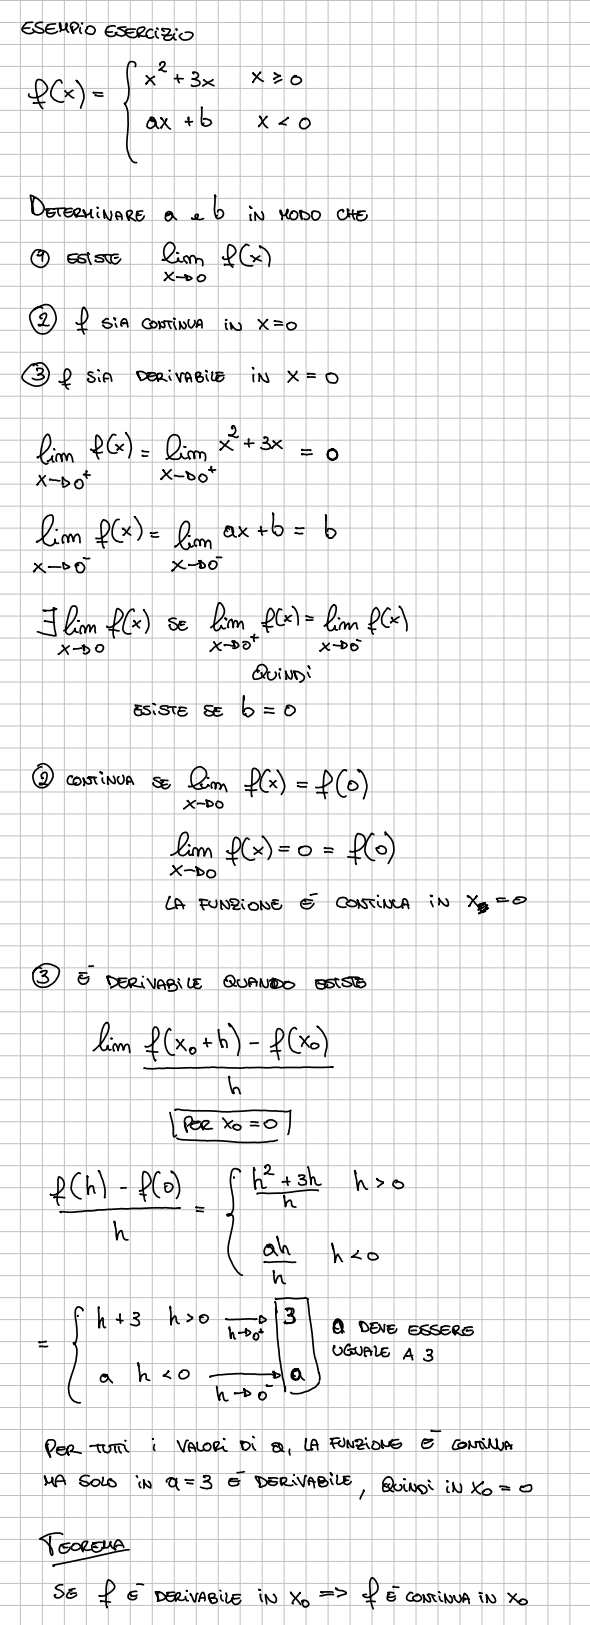 ESEMPIO ESERCIZIO
f(x) = { x² + 3x   x ≥ 0
ax + b   x < 0
DETERMINARE a e b IN MODO CHE
① ESISTE lim x→0 f(x)
② f SIA CONTINUA IN x=0
③ f SIA DERIVABILE IN x = 0
lim x→0⁺ f(x) = lim x→0⁺ x² + 3x = 0
lim x→0⁻ f(x) = lim x→0⁻ ax + b = b
∃ lim x→0 f(x) SE lim x→0⁺ f(x) = lim x→0⁻ f(x)
QUINDI
ESISTE SE b = 0
② CONTINUA SE lim x→0 f(x) = f(0)
lim x→0 f(x) = 0 = f(0)
LA FUNZIONE È CONTINUA IN x₀ = 0
③ È DERIVABILE QUANDO ESISTE
lim (f(x₀ + h) - f(x₀)) / h
PER x₀ = 0
(f(h) - f(0)) / h = { (h² + 3h) / h   h > 0
ah / h   h < 0
= { h + 3   h > 0 → h→0⁺ 3
a   h < 0 → h→0⁻ a
a DEVE ESSERE
UGUALE A 3
PER TUTTI I VALORI DI a, LA FUNZIONE È CONTINUA
MA SOLO IN a = 3 È DERIVABILE, QUINDI IN x₀ = 0
TEOREMA
SE f È DERIVABILE IN x₀ => f È CONTINUA IN x₀